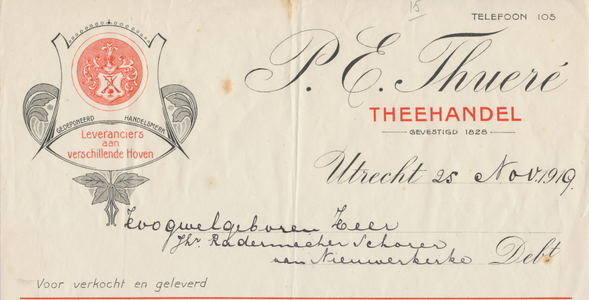 15
TELEFOON 105
P. E. Thueré
THEEHANDEL
GEVESTIGD 1828
GEDEPONEERD HANDELSMERK
Leveranciers
aan
verschillende Hoven
Utrecht 25 Nov. 1919.
Hoogwelgeboren Heer
Jhr. Radermacher Schorer
van Nieuwerkerke Debt
Voor verkocht en geleverd